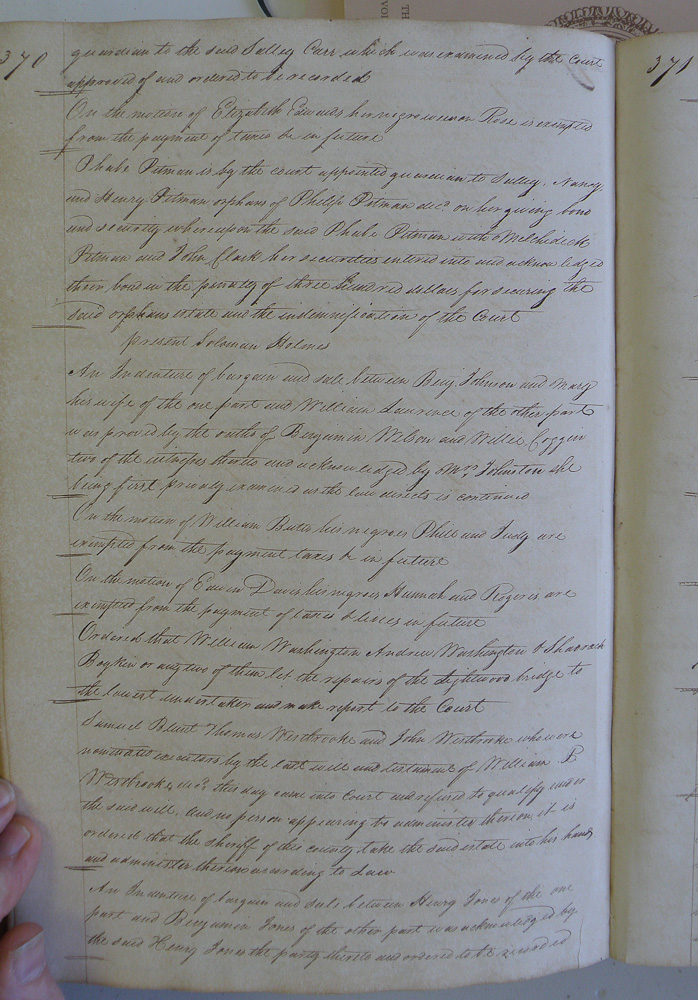 370
371
guardian to the said Salley Carr which was examined by the Court
approved of and ordered to be recorded
On the motion of Elizabeth Edwards her negro woman Rose is exempted
from the payment of taxes &c in future
Phebe Pitman is by the court appointed guardian to Salley, Nancy,
and Henry Pitman orphans of Philip Pitman decd. on her giving bond
and security whereupon the said Phebe Pitman with
Pitman and John Clark her securities entered into and acknowledged
their bond in the penalty of three Hundred dollars for securing the
said orphans estate and the indemnification of the Court
present Solomon Holmes
An Indenture of bargain and sale between Benj. Johnson and Mary
his wife of the one part and William Laurence of the other part
was proved by the oaths of Benjamin Nelson and Willie Coggin
two of the witnesses thereto and acknowledged by Mrs. Johnston she
being first privily examined as the law directs is continued
On the motion of William Butts his negroes Phill and Judy are
exempted from the payment taxes &c in future
On the motion of Edwin Davis his negroes Hannah and Rogers are
exempted from the payment of taxes & levies in future
Ordered that William Washington Andrew Washington & Shadrach
Boykin or any two of them let the repairs of the Lightwood bridge to
the lowest undertaker and make report to the Court
Samuel Blunt Thomas Westbrooke and John Westbrooke who were
nominated executors by the last will and testament of William P.
Westbrooke, decd. this day came into Court and refused to qualify under
the said will. And no person appearing to administer thereon it is
ordered that the sheriff of this county take the said estate into his hands
and administer thereon according to Law
An Indenture of bargain and sale between Henry Jones of the one
part and Benjamin Jones of the other part was acknowledged by
the said Henry Jones the party thereto and ordered to be recorded